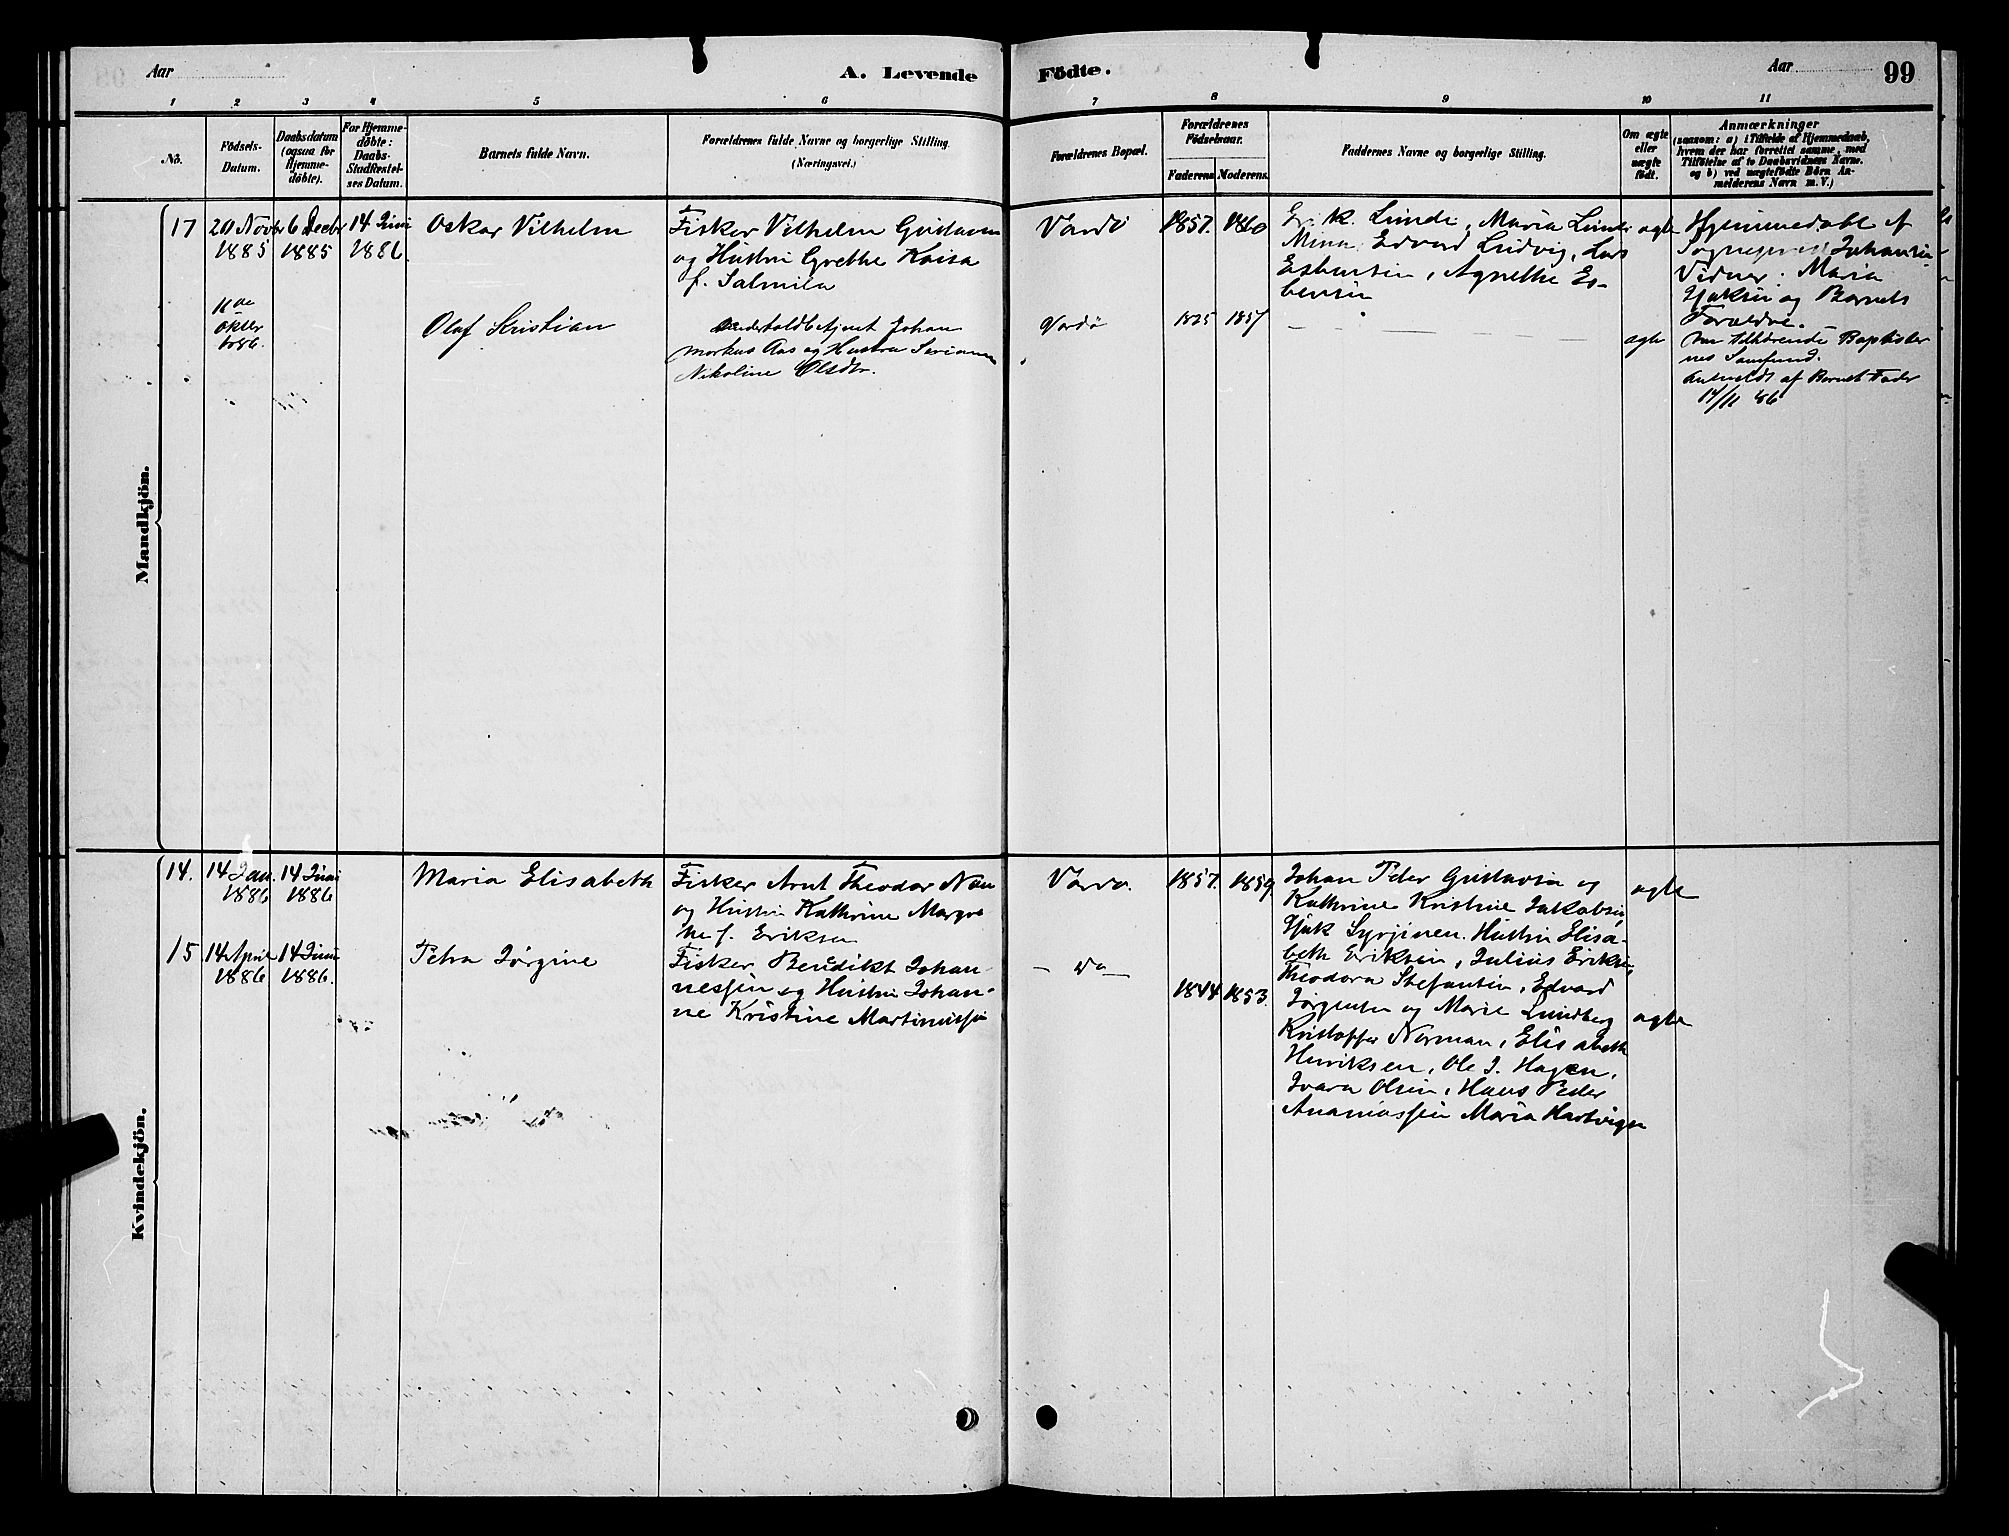 Aar
A. Levende
Födte.
Aar
99
1 2 3 4 5 6 7 8 9 10 11
No.
Födsels-
Datum.
Daabsdatum
(ogsaa for
Hjemme-
døbte).
For Hjemme-
døbte:
Daabs-
Stadfæstel-
ses Datum.
Barnets fulde Navn.
Forældrenes fulde Navne og borgerlige Stilling.
(Næringsvei.)
Forældrenes Bopæl.
Forældrenes
Födselsaar.
Faderens. Moderens.
Faddernes Navne og borgerlige Stilling.
Om ægte
eller
uægte
födt.
Anmærkninger
(saasom: a) i Tilfælde af Hjemmedaab,
hvem der har forrettet samme, med
Tilføielse af to Daabsvidners Navne.
og b) ved uægtefödte Börn An-
melderens Navn m. V.)
Mandkjön.
17
20 Novbr
1885
6 Decbr
1885
14 Juni
1886.
Oskar Vilhelm
Fisker Vilhelm Gustavsen
og Hustru Grethe Kaisa
f. Salmila
Vardö
1857.
1860
Er. K. Lunde, Maria Lunde
Mina, Edvard Ludvig, Lars
Esbensen, Agnethe Es-
bensen
ægte
Hjemmedøbt af
Johansen
Vidner: Maria
og Barnets
Forældre.
11te
Oktbr
1886.
Olaf Kristian
Johan
Markus Aas og Hustru
Nikoline Olsdtr.
Vardö
1825
1857
ægte
tilhørende Baptister
nes Samfund.
Anmeldt af Barnets Fader
14/11 86
Kvindekjön.
14.
14 Jan.
1886
14 Juni
1886
Maria Elisabeth
Fisker Arnt Theodor
og Hustru Kathrine Margre
the f. Eriksen
Vardö.
1857.
1859
Johan Peder Gustavsen og
Kathrine Kristine Jakobsen,
Syrjinen. Hustru Elisa-
beth Eriksen, Julius Eriksen,
Theodora Stefansen, Edvard
Jörgensen og Marie Lundberg
ægte
15
14 April
1886
14 Juni
1886.
Petra Jörgine
Fisker Bendikt Johan-
nessen og Hustru Johan-
ne Kristine Martinussen
— do —
1844
1853.
Kristoffer Norman, Elisabeth
Henriksen, Ole J. Hagen,
Ivara Olsen, Hans Peder
Ananiassen Maria Hartvigsen
ægte